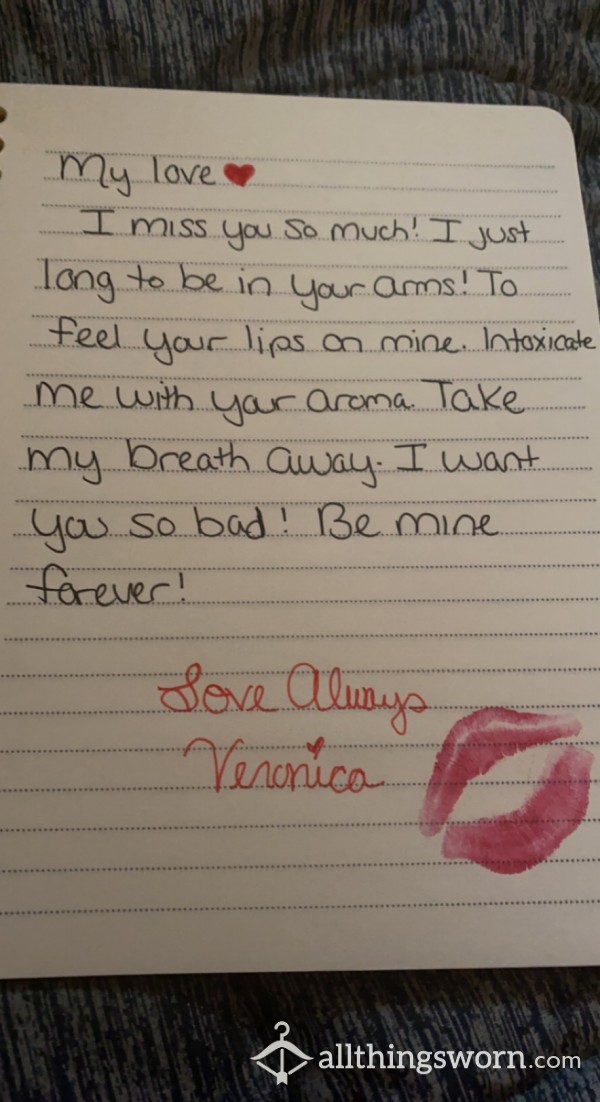 My love ❤
I miss you so much! I just
long to be in your arms! To
feel your lips on mine. Intoxicate
me with your aroma. Take
my breath away. I want
you so bad! Be mine
forever!
Love Always
Veronica
allthingsworn.com